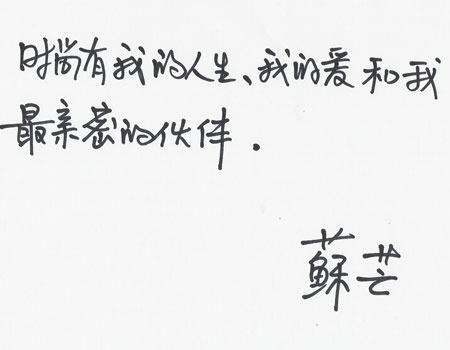 时尚有我的人生、我的爱和我
最亲密的伙伴.
蘇芒